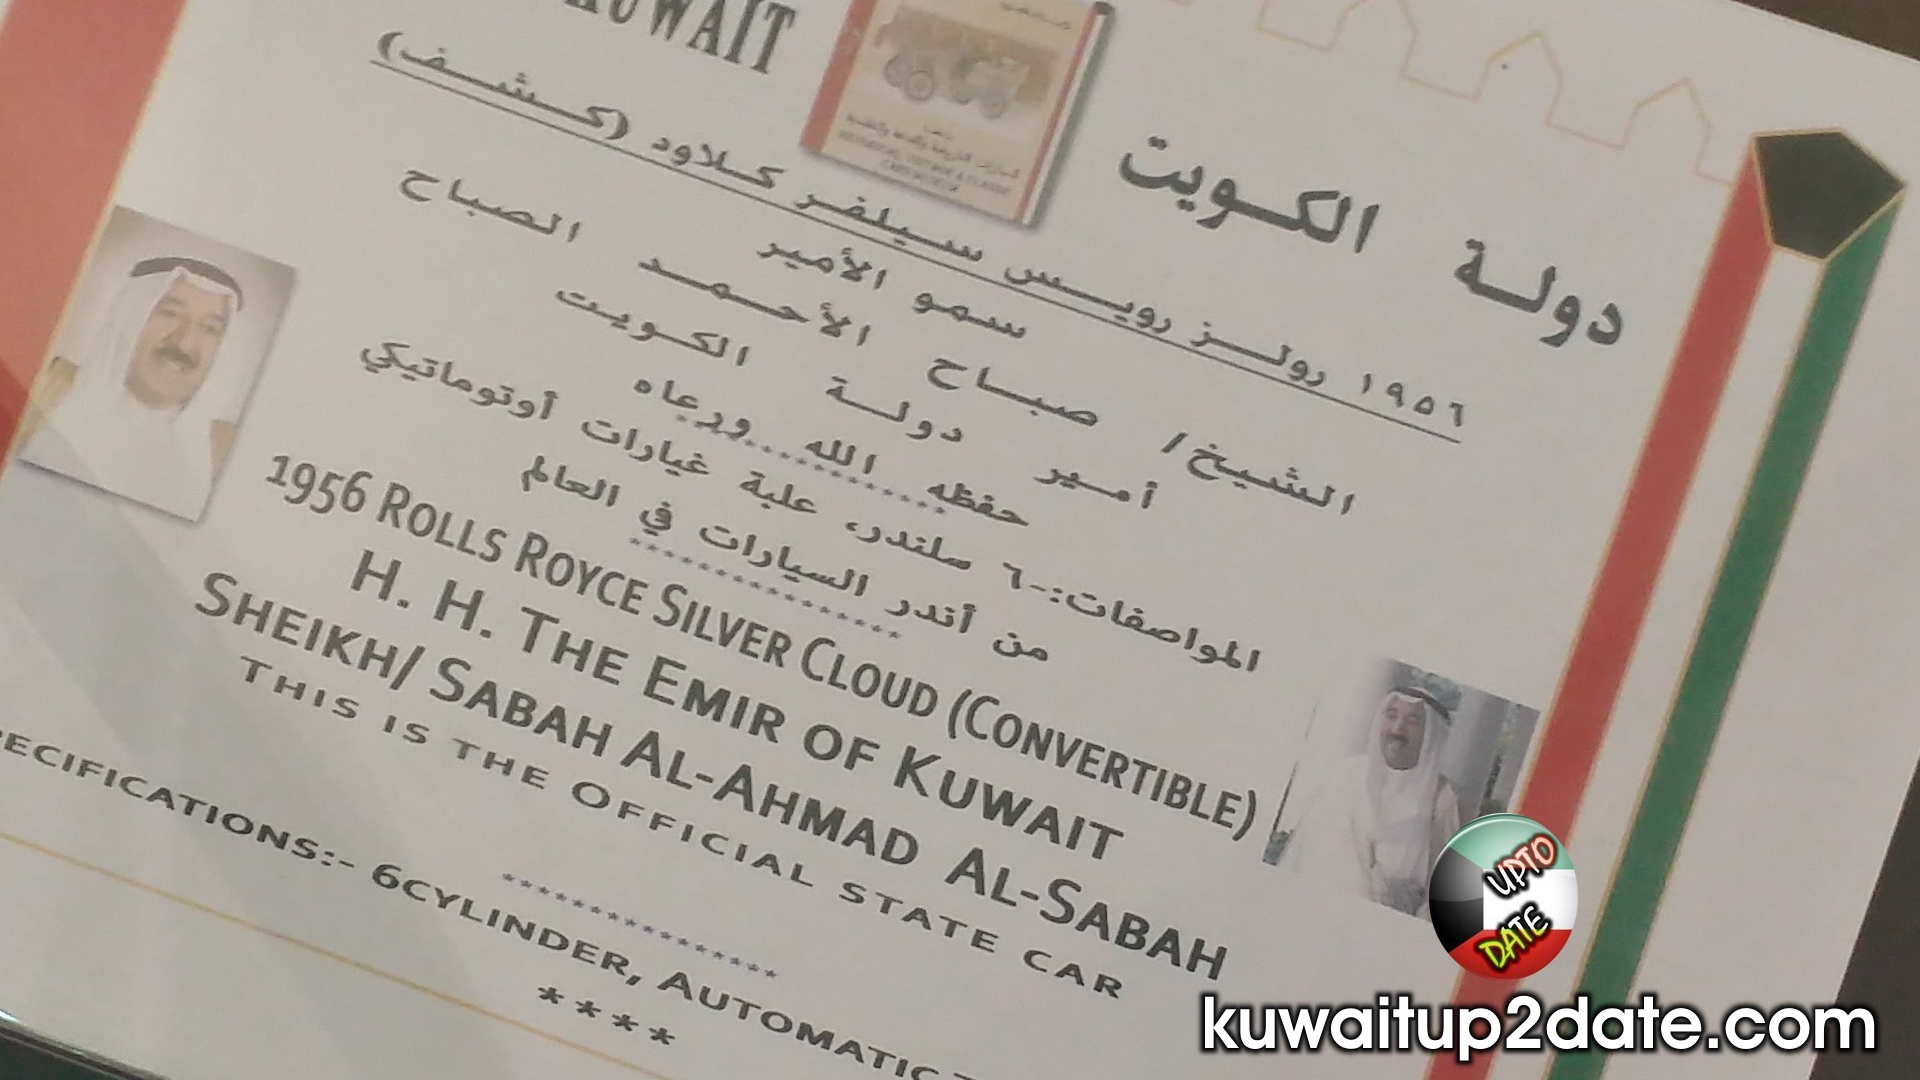 KUWAIT
دولة الكويت
١٩٥٦ رولز رويس سيلفر كلاود (كشف)
سمو الأمير
الشيخ/ صباح الأحمد الصباح
أمير دولة الكويت
حفظه الله ورعاه
المواصفات:-٦ سلندر، علبة غيارات أوتوماتيكي
من أندر السيارات في العالم
1956 ROLLS ROYCE SILVER CLOUD (CONVERTIBLE)
H. H. THE EMIR OF KUWAIT
SHEIKH/ SABAH AL-AHMAD AL-SABAH
THIS IS THE OFFICIAL STATE CAR
***************
PECIFICATIONS:- 6CYLINDER, AUTOMATIC
****
UPTO
DATE
kuwaitup2date.com